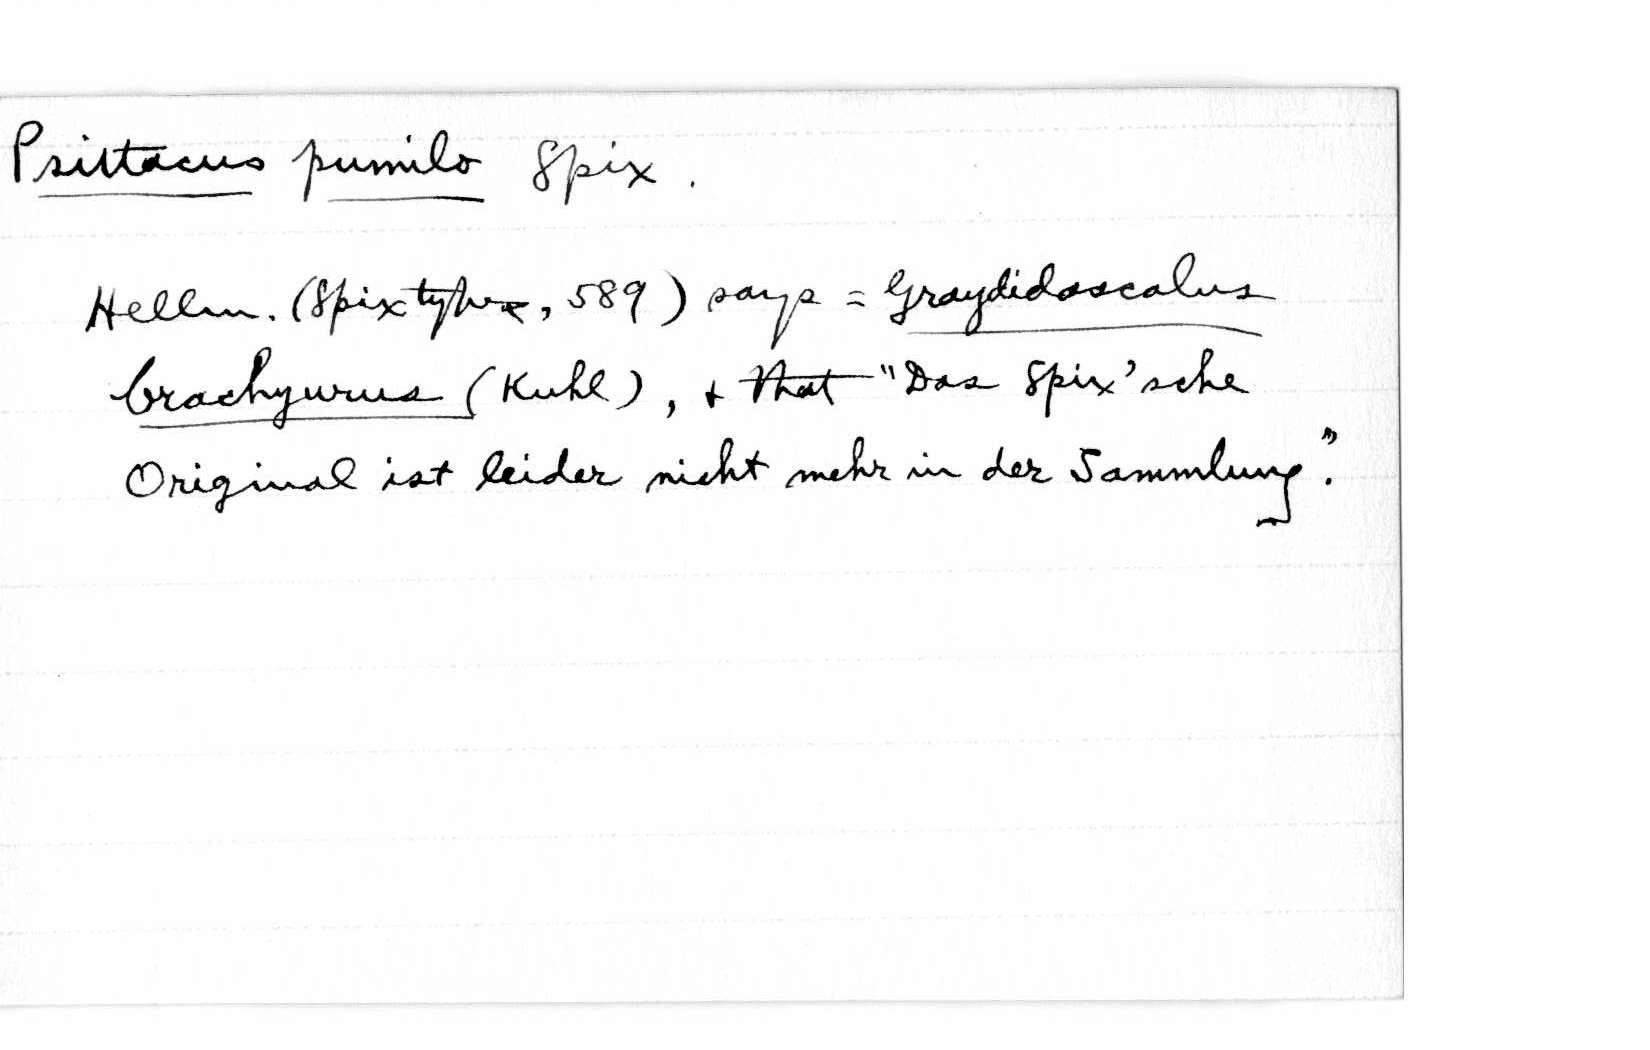 Psittacus pumilo Spix.
Hellm. (Spix types, 589) says = Graydidascalus
brachyurus (Kuhl), + that "Das Spix'sche
Original ist leider nicht mehr in der Sammlung."